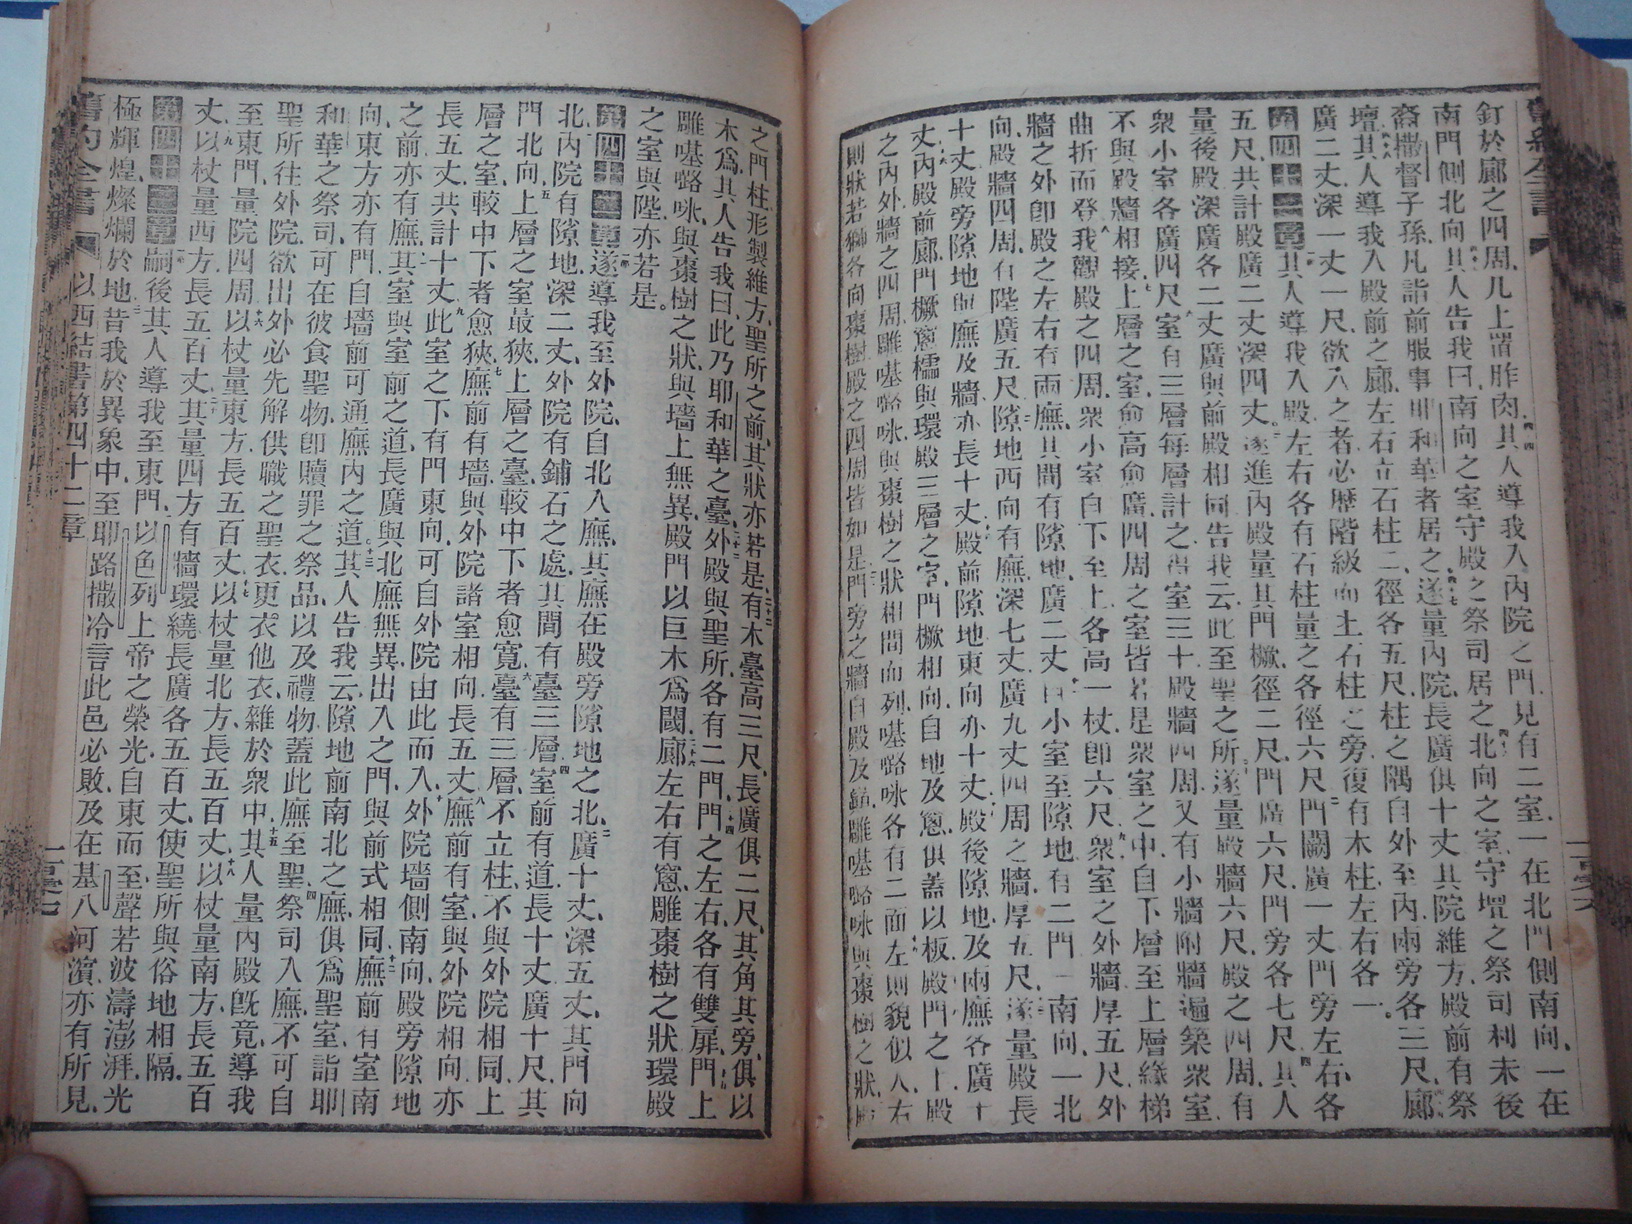 釘於廊之四周几上置胙肉其人導我入內院之門見有二室一在北門側南向一在
南門側北向其人告我曰南向之室守殿之祭司居之北向之室守壇之祭司利未後
裔撒督子孫凡詣前服事耶和華者居之遂量內院長廣俱十丈其院維方殿前有祭
壇其人導我入殿前之廊左右立石柱二徑各五尺柱之隅自外至內兩旁各三尺廊
廣二丈深一丈一尺欲入之者必歷階級而上石柱之旁復有木柱左右各一
第四十一章其人導我入殿左右各有石柱量之各徑六尺門闢廣一丈門旁左右各
五尺共計殿廣二丈深四丈遂進內殿量其門橛徑二尺門廣六尺門旁各七尺其人
量後殿深廣各二丈廣與前殿相同告我云此至聖之所遂量殿牆六尺殿之四周有
衆小室各廣四尺室有三層每層計之得室三十殿牆四周又有小牆附牆遍築衆室
不與殿牆相接上層之室愈高愈廣四周之室皆若是衆室之中自下層至上層緣梯
曲折而登我觀殿之四周衆小室自下至上各高一杖卽六尺衆室之外牆厚五尺外
牆之外卽殿之左右有兩廡其間有隙地廣二丈由小室至隙地有二門一南向一北
向殿牆四周有陛廣五尺隙地西向有廡深七丈廣九丈四周之牆厚五尺遂量殿長
十丈殿旁隙地與廡及牆亦長十丈殿前隙地東向亦十丈殿後隙地及兩廡各廣十
丈內殿前廊門橛窻櫺與環殿三層之室門橛相向自地及窻俱蓋以板殿門之上殿
之內外牆之四周雕𠼻𡀔咏與棗樹之狀相間而列𠼻𡀔咏各有二面左則貌似人右
則狀若獅各向棗樹殿之四周皆如是門旁之牆自殿及顚雕𠼻𡀔咏與棗樹之狀
之門柱形製維方聖所之前其狀亦若是有木臺高三尺長廣俱二尺其角其旁俱以
木爲其人告我曰此乃耶和華之臺外殿與聖所各有二門門之左右各有雙扉門上
雕𠼻𡀔咏與棗樹之狀與墻上無異殿門以巨木爲閾廊左右有窻雕棗樹之狀環殿
之室與陛亦若是
第四十二章遂導我至外院自北入廡其廡在殿旁隙地之北廣十丈深五丈其門向
北內院有隙地深二丈外院有鋪石之處其間有臺三層室前有道長十丈廣十尺其
門北向上層之室最狹上層之臺較中下者愈寬臺有三層不立柱不與外院相同上
層之室較中下者愈狹廡前有墻與外院諸室相向長五丈廡前有室與外院相向亦
長五丈共計十丈此室之下有門東向可自外院由此而入外院墻側南向殿旁隙地
之前亦有廡其室與室前之道長廣與北廡無異出入之門與前式相同廡前有室南
向東方亦有門自墻前可通廡內之道其人告我云隙地前南北之廡俱爲聖室詣耶
和華之祭司可在彼食聖物卽贖罪之祭品以及禮物蓋此廡至聖祭司入廡不可自
聖所往外院欲出外必先解供職之聖衣更衣他衣雜於衆中其人量內殿旣竟導我
至東門量院四周以杖量東方長五百丈以杖量北方長五百丈以杖量南方長五百
丈以杖量西方長五百丈其量四方有牆環繞長廣各五百丈使聖所與俗地相隔
第四十三章嗣後其人導我至東門以色列上帝之榮光自東而至聲若波濤澎湃光
極輝煌燦爛於地昔我於異象中至耶路撒冷言此邑必敗及在基八河濱亦有所見
舊約全書 以西結書第四十二章